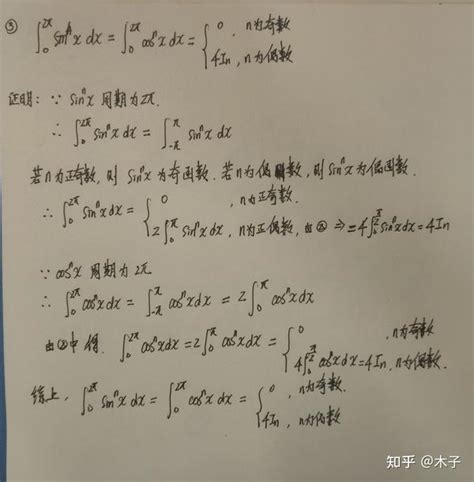 ③ ∫₀^{2π} sinⁿx dx = ∫₀^{2π} cosⁿx dx = { 0, n为奇数
4Iₙ, n为偶数
证明: ∵ sinⁿx 周期为2π.
∴ ∫₀^{2π} sinⁿx dx = ∫_{-π}^{π} sinⁿx dx
若n为正奇数, 则 sinⁿx为奇函数. 若n为偶数, 则 sinⁿx为偶函数.
∴ ∫₀^{2π} sinⁿx dx = { 0, n为正奇数.
2∫₀^{π} sinⁿx dx, n为正偶数, 由② ⇒ = 4∫₀^{π/2} sinⁿx dx = 4Iₙ
∵ cosⁿx 周期为 2π
∴ ∫₀^{2π} cosⁿx dx = ∫_{-π}^{π} cosⁿx dx = 2∫₀^{π} cosⁿx dx
由②中得. ∫₀^{2π} cosⁿx dx = 2∫₀^{π} cosⁿx dx = { 0, n为奇数
4∫₀^{π/2} cosⁿx dx = 4Iₙ, n为偶数.
综上, ∫₀^{2π} sinⁿx dx = ∫₀^{2π} cosⁿx dx = { 0, n为奇数.
4Iₙ, n为偶数
知乎 @木子